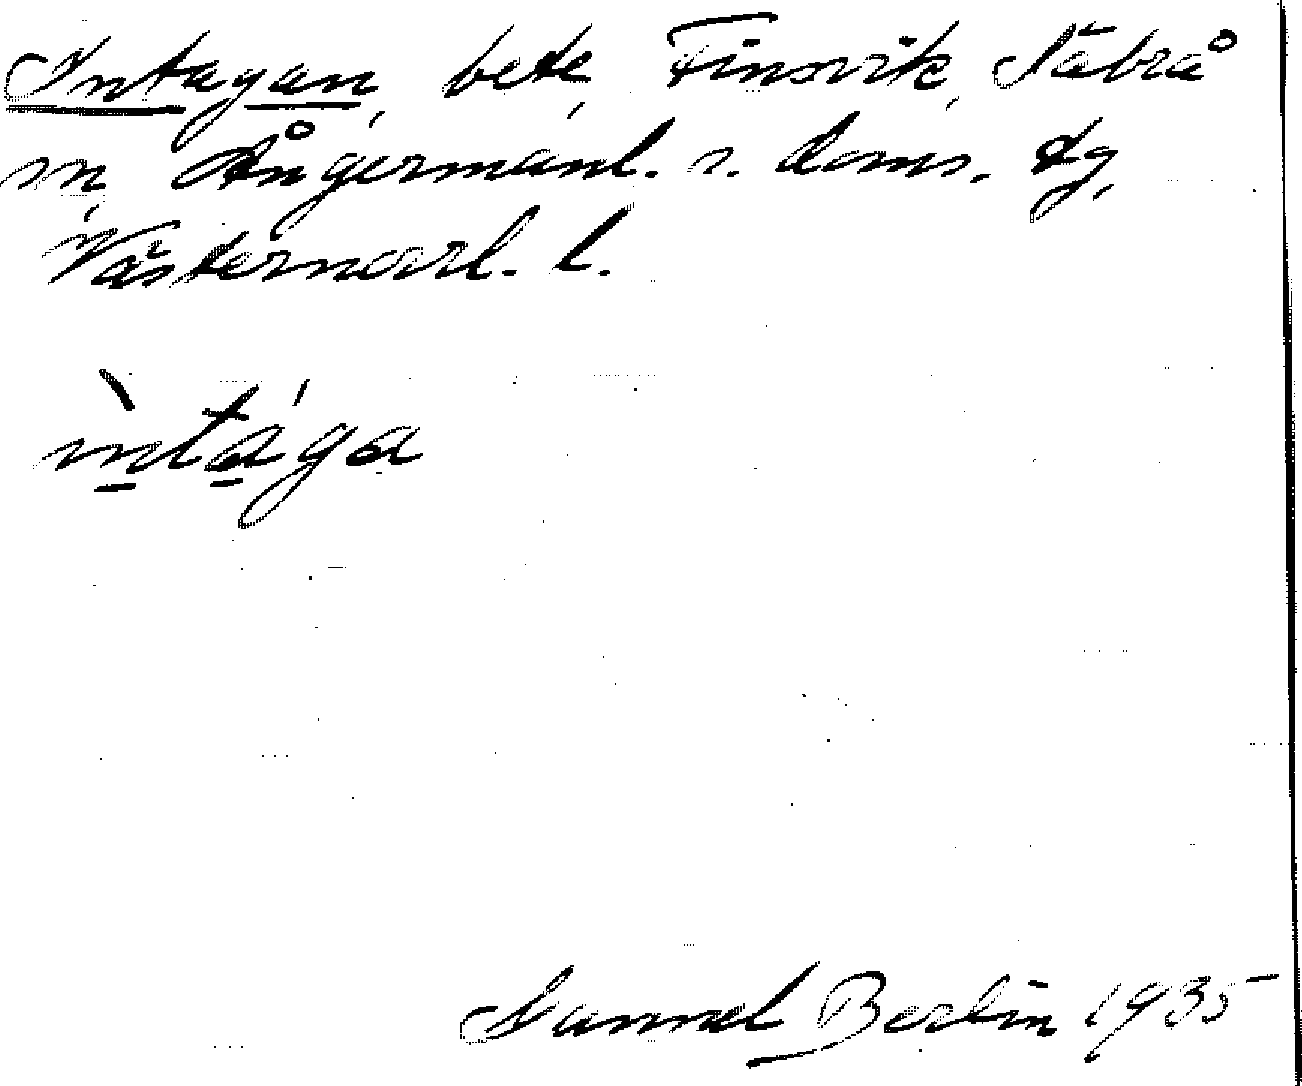 Intagan, bete, Finsvik, Säbrå
sn, Ångermanl. s. doms. dg,
Västernorrl. l.
ìntága
Samuel Berlin 1935